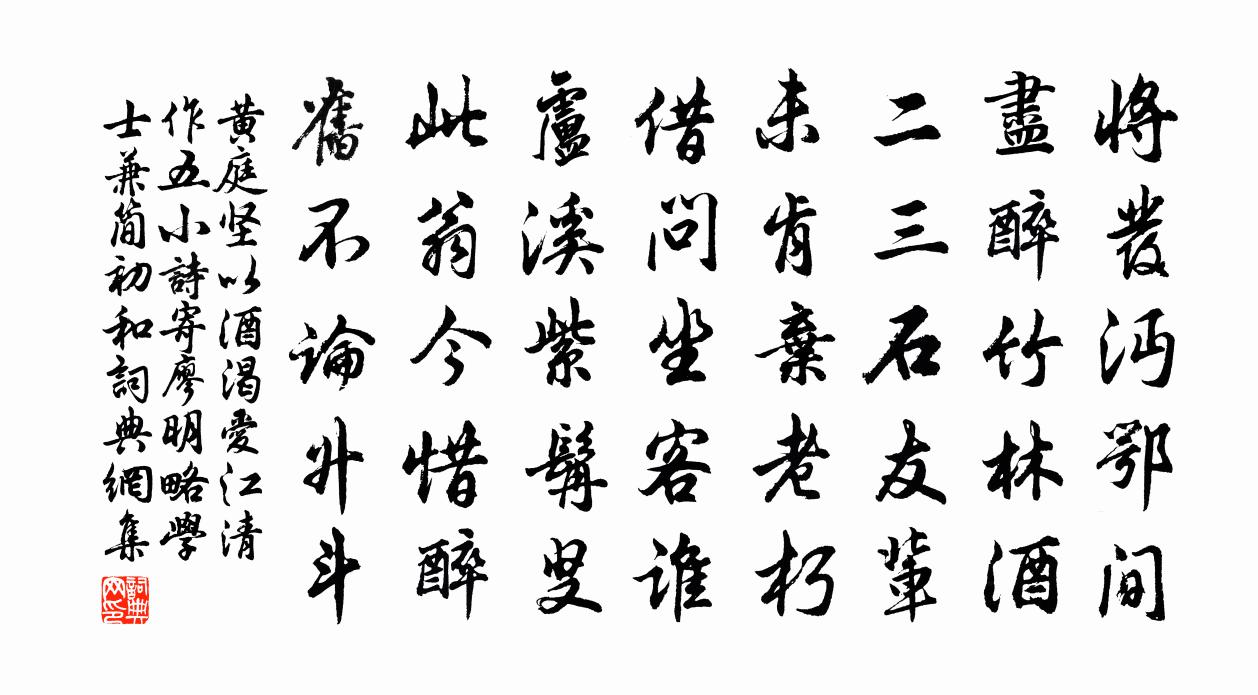 將發沔鄂間
盡醉竹林酒
二三石友輩
未肯棄老朽
借問坐客誰
盧溪紫髯叟
此翁今惜醉
舊不論升斗
黄庭坚以酒渴愛江清
作五小詩寄廖明略學
士兼簡初和詞典網集